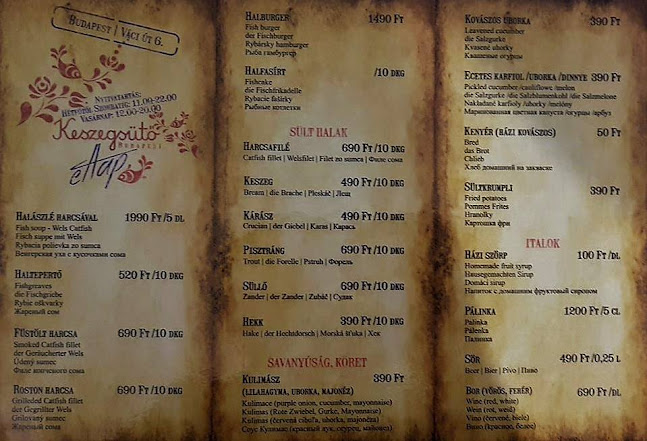 Budapest | Váci út 6.
Nyitvatartás:
Hétfőtől Szombatig: 11.00-22.00
Vasárnap: 12.00-20.00
Keszegsütő
Budapest
étlap
Halászlé harcsával 1990 Ft/5 dl
Fish soup - Wels Catfish
Fisch suppe mit Wels
Rybacia polievka zo sumca
Венгерская уха с кусочками сома
Haltepertő 520 Ft/10 dkg
Fishgreaves
die Fischgriebe
Rybie oškvarky
Жареный сом
Füstölt harcsa 690 Ft/10 dkg
Smoked Catfish fillet
der Geräucherter Wels
Údený sumec
Филе копченого сома
Roston harcsa 690 Ft/10 dkg
Grilleded Catfish fillet
der Gegrillter Wels
Grilovaný sumec
Жареный сом
Halburger 1490 Ft
Fish burger
der Fischburger
Rybársky hamburger
Рыба гамбургер
Halfasírt /10 dkg
Fishcake
die Fischfrikadelle
Rybacie fašírky
Рыбные котлетки
Sült halak
Harcsafilé 690 Ft/10 dkg
Catfish fillet | Welsfilet | Filet zo sumca | Филе сома
Keszeg 490 Ft/10 dkg
Bream | die Brache | Pleskáč | Лещ
Kárász 490 Ft/10 dkg
Crucian | der Giebel | Karas | Карась
Pisztráng 690 Ft/10 dkg
Trout | die Forelle | Pstruh | Форель
Süllő 690 Ft/10 dkg
Zander | der Zander | Zubáč | Судак
Hekk 390 Ft/10 dkg
Hake | der Hechtdorsch | Morská šťuka | Хек
Savanyúság, köret
Kulimász 390 Ft
(lilahagyma, uborka, majonéz)
Kulimace (purple onion, cucumber, mayonnaise)
Kulimas (Rote Zwiebel, Gurke, Mayonnaise)
Kulimas (červená cibuľa, uhorka, majonéza)
Соус Кулимас (красный лук, огурец, майонез)
Kovászos uborka 390 Ft
Leavened cucumber
die Salzgurke
Kvasené uhorky
Квашеные огурцы
Ecetes karfiol /uborka /dinnye 390 Ft
Pickled cucumber /cauliflowe /melon
die Salzgurke /die Salzblumenkohl /die Salzmelone
Nakladané karfioly /uhorky /melóny
Маринованная цветная капуста /огурцы /арбуз
Kenyér (házi kovászos) 50 Ft
Bred
das Brot
Chlieb
Хлеб домашний на закваске
Sültkrumpli 390 Ft
Fried potatoes
Pommes Frites
Hranolky
Картошка фри
Italok
Házi szörp 100 Ft/dl
Homemade fruit syrup
Hausegemachten Sirup
Domáci sirup
Напиток с домашним фруктовый сиропом
Pálinka 1200 Ft/5 cl
Palinka
Pálenka
Палинка
Sör 490 Ft/0,25 l
Beer | Bier | Pivo | Пиво
Bor (vörös, fehér) 690 Ft/dl
Wine (red, white)
Wein (rot, weid)
Víno (červené, biele)
Вино (красное, белое)